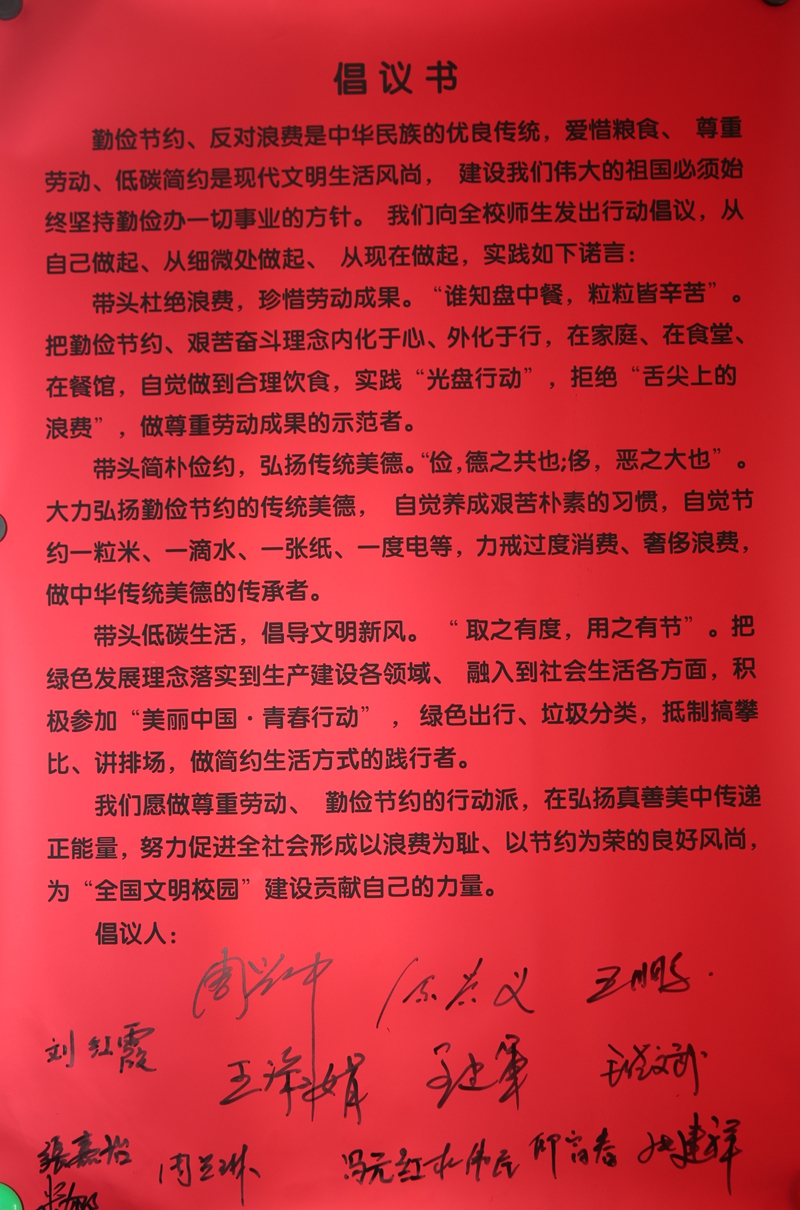 倡议书
勤俭节约、反对浪费是中华民族的优良传统，爱惜粮食、尊重
劳动、低碳简约是现代文明生活风尚，建设我们伟大的祖国必须始
终坚持勤俭办一切事业的方针。我们向全校师生发出行动倡议，从
自己做起、从细微处做起、从现在做起，实践如下诺言：
带头杜绝浪费，珍惜劳动成果。“谁知盘中餐，粒粒皆辛苦”。
把勤俭节约、艰苦奋斗理念内化于心、外化于行，在家庭、在食堂、
在餐馆，自觉做到合理饮食，实践“光盘行动”，拒绝“舌尖上的
浪费”，做尊重劳动成果的示范者。
带头简朴俭约，弘扬传统美德。“俭,德之共也;侈，恶之大也”。
大力弘扬勤俭节约的传统美德，自觉养成艰苦朴素的习惯，自觉节
约一粒米、一滴水、一张纸、一度电等，力戒过度消费、奢侈浪费，
做中华传统美德的传承者。
带头低碳生活，倡导文明新风。“取之有度，用之有节”。把
绿色发展理念落实到生产建设各领域、融入到社会生活各方面，积
极参加“美丽中国·青春行动”，绿色出行、垃圾分类，抵制搞攀
比、讲排场，做简约生活方式的践行者。
我们愿做尊重劳动、勤俭节约的行动派，在弘扬真善美中传递
正能量，努力促进全社会形成以浪费为耻、以节约为荣的良好风尚，
为“全国文明校园”建设贡献自己的力量。
倡议人：
周兴中 王鹏
刘红霞
张嘉怡 冯元红